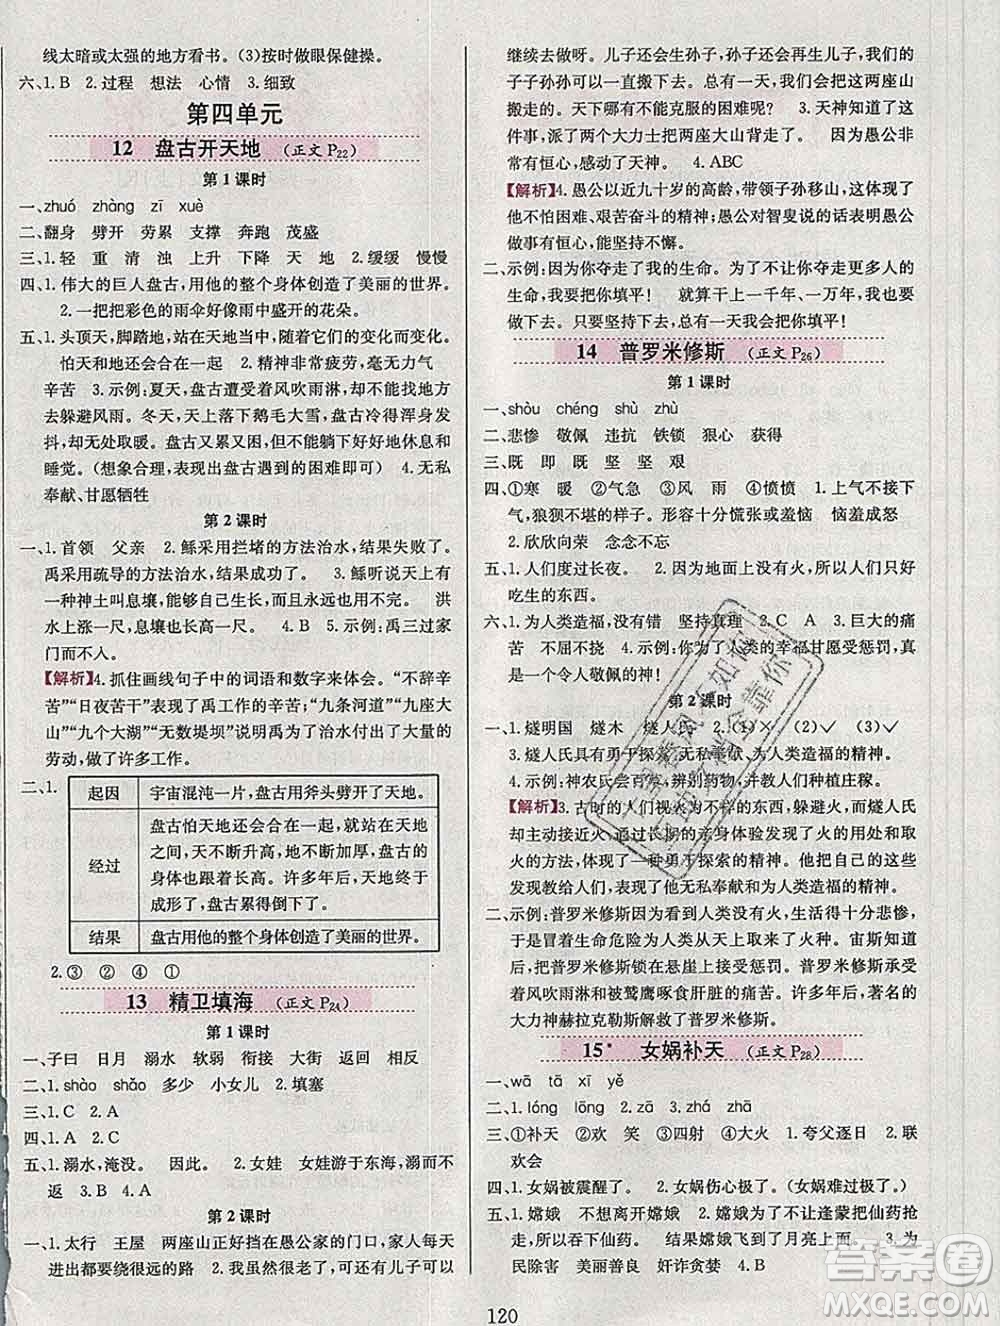 线太暗或太强的地方看书。(3)按时做眼保健操。
六、1.B 2.过程 想法 心情 3.细致
第四单元
12 盘古开天地 (正文P22)
第1课时
一、zhuó zhàng zī xuè
二、翻身 劈开 劳累 支撑 奔跑 茂盛
三、1.轻 重 清 浊 上升 下降 天 地 2.缓缓 慢慢
四、1.伟大的巨人盘古,用他的整个身体创造了美丽的世界。
2.一把把彩色的雨伞好像雨中盛开的花朵。
五、1.头顶天,脚踏地,站在天地当中,随着它们的变化而变化。
怕天和地还会合在一起 2.精神非常疲劳,毫无力气
辛苦 3.示例:夏天,盘古遭受着风吹雨淋,却没有地方
去躲避风雨。冬天,天上落下鹅毛大雪,盘古冷得浑身发
抖,却无处取暖。盘古又累又困,但没办法好好地休息和
睡觉。(想象合理,表现出盘古遇到的困难即可) 4.无私
奉献、甘愿牺牲
第2课时
一、1.首领 父亲 2.鲧采用拦堵的方法治水,结果失败了。
禹采用疏导的方法治水,结果成功了。 3.鲧听说天上有
一种神土叫息壤,可以自己生长,于是就去偷了一些。 洪
水上涨一尺,息壤也上涨一尺。 4.B 5.示例:禹三过家
门而不入。
【解析】4.抓住画线句子中的词语和数字来体会。“不辞辛
苦”“日夜苦干”表现了禹工作的辛苦;“九条河道”“九座大
山”“九个大湖”“无数堤坝”说明禹为了治水付出了大量的
劳动,做了许多工作。
二、1.
起因 宇宙混沌一片,盘古用斧头劈开了天地。
经过 盘古怕天地还会合在一起,就站在天地
之间,天不断升高,地不断加厚,盘古也
跟着长高。许多年后,天地终于
成形了,盘古累得倒下了。
结果 盘古用他的整个身体创造了美丽的世界。
2.③ ② ④ ①
13 精卫填海 (正文P24)
第1课时
一、子曰 日月 溺水 软弱 衔接 大街 返回 相反
二、1.shào shǎo 多少 小女儿 2.填塞
三、1.C 2.A
四、1.A 2.C
五、1.溺水,淹没。 因此。 2.女娃 女娃游于东海,溺而不
返 3.B 4.A
第2课时
一、1.太行 王屋 两座山正好挡在愚公家的门口,家人每天
进出都要绕很远的路 2.我虽然老了,还有儿子可以
继续去做呀。儿子还会生孙子,孙子又会再生儿子,我们的
子子孙孙可以一直搬下去。我们一定能把这两座山
搬走的。天下哪有不能克服的困难呢? 3.天神知道了这
件事,派了两个大力士把两座大山背走了。 因为愚公非常
有恒心,感动了天神。 4.ABC
【解析】4.愚公以近九十岁的高龄,带领子孙移山,体现了
他不怕困难、艰苦奋斗的精神;愚公对智叟说的话表明愚公
做事有恒心,能坚持不懈。
二、示例:因为你夺走了我的生命。为了让你不能夺走更多人的
生命,我要把你填平! 就算干上一千年、一万年,我也要
做下去。只要坚持下去,总会把你填平!
14 普罗米修斯 (正文P26)
第1课时
一、shòu chéng shù zhù
二、悲惨 敬佩 违抗 铁锁 狠心 获得
三、既 即 既 坚 坚 艰
四、①寒 暖 ②气急 ③风 雨 ④愤愤 1.上气不接下
气,狼狈不堪的样子。形容十分慌张或羞恼 恼羞成怒
2.欣欣向荣 念念不忘
五、1.人们度过长夜。 2.因为地面上没有火,人们只好
吃生的东西。
六、1.为人类造福,没有错 坚持真理 2.C A 3.巨大的痛
苦 不屈不挠。 4.示例:你为了人类的幸福甘愿受尽痛
苦,真是一个令人敬佩的神!
第2课时
一、1.燧明国 燧木 燧人氏 2.(1)× (2)√ (3)√
3.燧人氏具有勇于探索、无私奉献、为人类造福的精神。
4.示例:神农氏尝百草,辨别药物,并教人们种植庄稼。
【解析】3.古时的人们视火为不祥的东西,躲避火,而燧人氏
却通过长期的亲身体验发现了火的用处和用
法,体现了一种勇于探索的精神。他把自己的这些
发现教给人们,体现了他无私奉献和为人类造福的精神。
二、示例:普罗米修斯因为看到人类没有火,生活得十分悲惨,
于是冒着生命危险,为人类从天上取来了火种。宙斯知道后
十分恼怒,把普罗米修斯锁在悬崖上,让他忍受着烈日暴晒、
风吹雨淋和被鹫鹰啄食肝脏的痛苦。许多年后,著名的
大力神赫拉克勒斯解救了普罗米修斯。
15* 女娲补天 (正文P28)
一、wā tā xī yě
二、1.lóng lōng 2.zā 3.zhá zhā
三、①补天 ②欢 笑 ③四射 ④四溅 1.夸父逐日 2.联
欢会
四、1.女娲被震醒了。 2.女娲伤心极了。 3.示例略。
五、1.嫦娥 不想离开嫦娥 2.嫦娥为了不让逢蒙把仙药拿
走,所以吞下仙药。 结果嫦娥飞到了月亮上面。 3.为
民除害 美丽善良 奸诈贪婪 4.B
120
答案圈
MXQE.COM